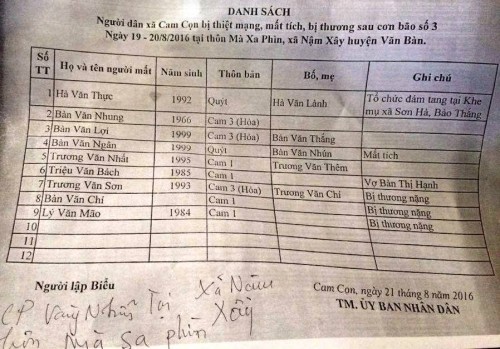 DANH SÁCH
Người dân xã Cam Cọn bị thiệt mạng, mất tích, bị thương sau cơn bão số 3
Ngày 19 - 20/8/2016 tại thôn Mà Xa Phìn, xã Nậm Xây huyện Văn Bàn.
Số TT Họ và tên người mất Năm sinh Thôn bản Bố, mẹ Ghi chú
1 Hà Văn Thực 1992 Quýt Hà Văn Lành Tổ chức đám tang tại Khe
mụ xã Sơn Hà, Bảo Thắng
2 Bàn Văn Nhung 1966 Cam 3 (Hòa)
3 Bàn Văn Lợi 1999 Cam 3 (Hòa) Bàn Văn Thắng
4 Bàn Văn Ngân 1999 Quýt Bàn Văn Nhún Mất tích
5 Trương Văn Nhất 1995 Cam 1 Trương Văn Thêm
6 Triệu Văn Bách 1985 Cam 1 Vợ Bàn Thị Hạnh
7 Trương Văn Sơn 1993 Cam 3 (Hòa) Trương Văn Chí Bị thương nặng
8 Bàn Văn Chí Cam 1 Bị thương nặng
9 Lý Văn Mão 1984 Cam 1 Bị thương nặng
10
11
12
Người lập Biểu
Cam Con, ngày 21 tháng 8 năm 2016
TM. ỦY BAN NHÂN DÂN
CP Vàng Nhấn Tại Xã Nậm Xây
Mà Sa phìn